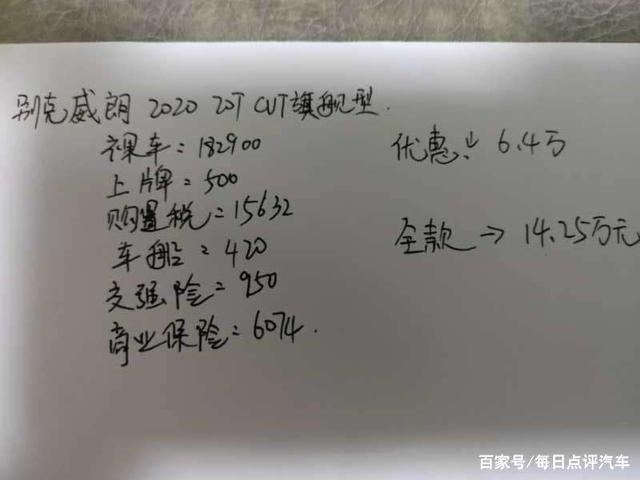 别克威朗 2020 20T CVT旗舰型.
裸车：182900
上牌=500
购置税=15632
车船=420
交强险=950
商业保险：6074.
优惠↓6.4万
全款→14.25万元
百家号/每日点评汽车